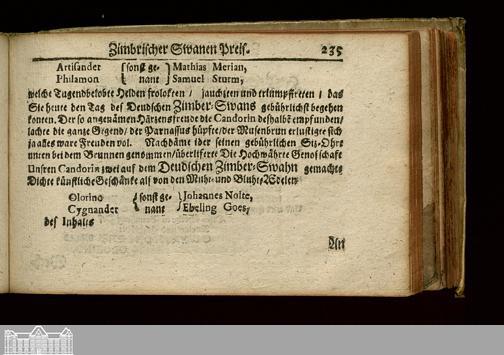 Zimbrischer Swanen Preis. 235
Artisander { sonst ge- } Mathias Merian,
Philamon { nant } Samuel Sturm,
welche Tugendbelobte Helden frolokten / jauchzten und triumpfireten / das
Sie heute den Tag des Deudschen Zimber-Swans gebührlichst begehen
konten. Der so angenämen Härzensfreude die Candorin deshalbe empfunden/
lachte die ganze Gegend/ der Parnassus hüpfte/ der Musenbrun erlustigte sich
ja alles ware Freuden vol. Nachdäme ider seinen gebührlichen Siz-Ohrt
unten bei dem Brunnen genommen/ überliferte Die Hochwährte Genosschaft
Unsren Candorin zwei auf dem Deudschen Zimber-Swahn gemachte
Dichtkünstliche Geschänke als von den Muht- und Bluht-Edelen
Olorino { sonst ge- } Johannes Nolte,
Cygnander { nant } Ebeling Goes,
des Inhalts
An